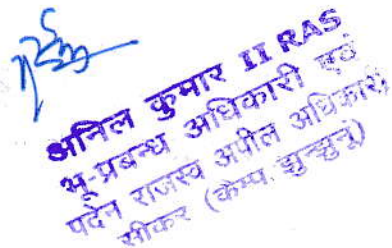 अनिल कुमार II RAS
भू-प्रबन्ध अधिकारी एवं
पदेन राजस्व अपील अधिकारी,
सीकर (केम्प झुन्झुनू)